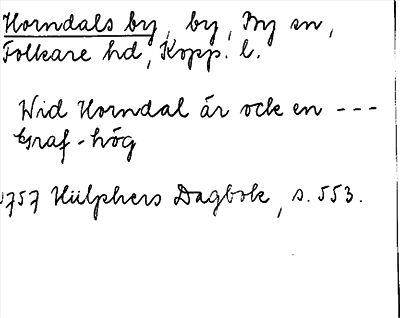 Horndals by, by, By sn,
Folkare hd, Kopp. l.
Wid Horndal är ock en ---
Graf-hög
1757 Hülphers Dagbok, s. 553.